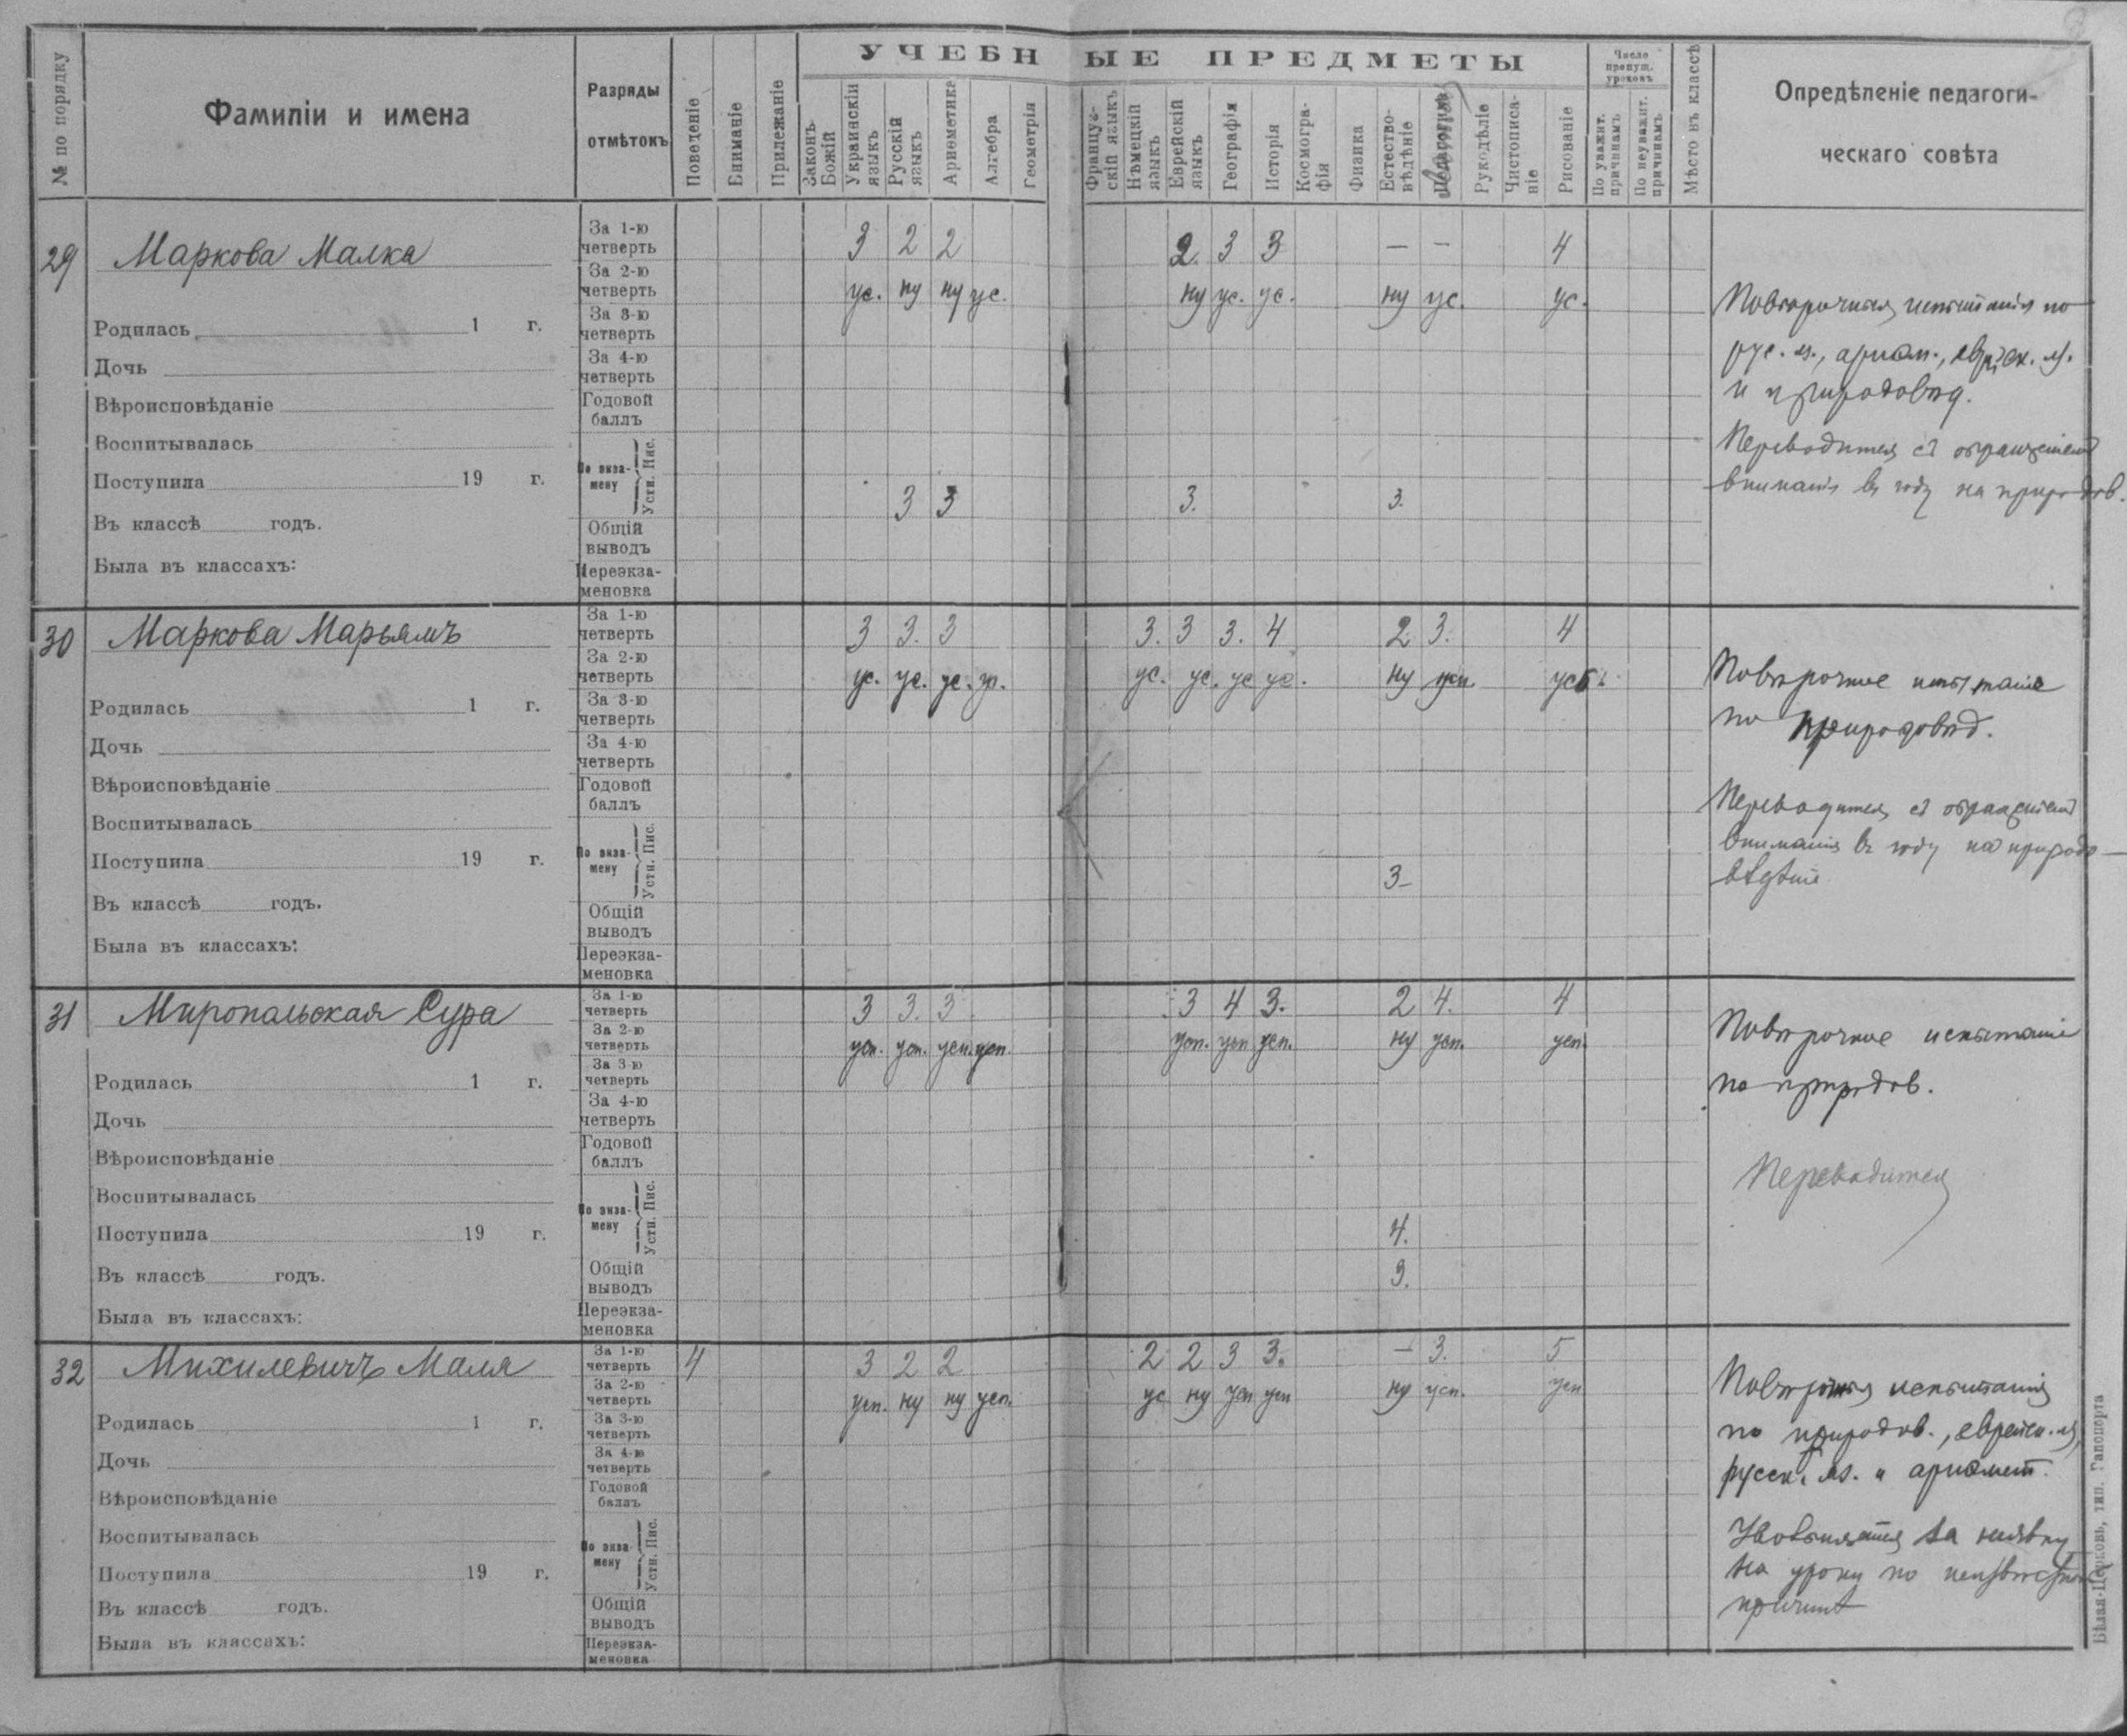 УЧЕБНЫЕ ПРЕДМЕТЫ
№ по порядку
Фамиліи и имена
Разряды отмѣтокъ
Поведеніе
Вниманіе
Прилежаніе
Законъ Божій
Украинскій языкъ
Русскій языкъ
Ариѳметика
Алгебра
Геометрія
Француз-скій языкъ
Нѣмецкій языкъ
Еврейскій языкъ
Географія
Исторія
Космогра-фія
Физика
Естество-вѣдѣніе
Педагогика
Рукодѣліе
Чистописа-ніе
Рисованіе
Число пропущ. уроковъ
По уважит. причинамъ
По неуважит. причинамъ
Мѣсто въ классѣ
Опредѣленіе педагоги-
ческаго совѣта
29 Маркова Малка
За 1-ю четверть 3 2 2 2. 3 3 — — 4
За 2-ю четверть ус. ну ну ус. ну ус. ус. ну ус. ус.
Родилась 1 г.
За 3-ю четверть
Дочь
За 4-ю четверть
Вѣроисповѣданіе
Годовой баллъ
Воспитывалась
По экза-мену Пис.
Поступила 19 г.
Устн. 3 3 3. 3.
Въ классѣ годъ.
Общій выводъ
Была въ классахъ:
Переэкза-меновка
испытанія по
рус. яз., ариѳм., еврейск. яз.
и природовѣд.
Переводится съ обращеніемъ
вниманія въ году на природов.
30 Маркова Марьямъ
За 1-ю четверть 3 3. 3 3. 3 3. 4 2. 3. 4
За 2-ю четверть ус. ус. ус. ус. ус. ус ус. ну усп.
Родилась 1 г.
За 3-ю четверть
Дочь
За 4-ю четверть
Вѣроисповѣданіе
Годовой баллъ
Воспитывалась
По экза-мену Пис.
Поступила 19 г.
Устн. 3-
Въ классѣ годъ.
Общій выводъ
Была въ классахъ:
Переэкза-меновка
Повѣрочное испытаніе
по природовѣд.
Переводится съ обращеніемъ
вниманія въ году на природо-
вѣдѣніе
31 Миропольская Сура
За 1-ю четверть 3 3. 3 3 4 3. 2 4. 4
За 2-ю четверть усп. усп. усп. усп. усп. усп усп. ну усп. усп.
Родилась 1 г.
За 3-ю четверть
Дочь
За 4-ю четверть
Вѣроисповѣданіе
Годовой баллъ
Воспитывалась
По экза-мену Пис.
Поступила 19 г.
Устн. 4.
Въ классѣ годъ.
Общій выводъ 3.
Была въ классахъ:
Переэкза-меновка
Повѣрочное испытаніе
по природов.
Переводится
32 Михилевичъ Маля
За 1-ю четверть 4 3 2 2 2 2 3 3. — 3. 5
За 2-ю четверть усп. ну ну усп. ус ну усп усп ну усп. усп
Родилась 1 г.
За 3-ю четверть
Дочь
За 4-ю четверть
Вѣроисповѣданіе
Годовой баллъ
Воспитывалась
По экза-мену Пис.
Поступила 19 г.
Устн.
Въ классѣ годъ.
Общій выводъ
Была въ классахъ:
Переэкза-меновка
испытанія
по природов., еврейск. яз,
русск. яз. и ариѳмет.
Увольняется за неявку
на уроки по неизвѣстной
причинѣ
Бѣлая-Церковь, тип. Гапопорта